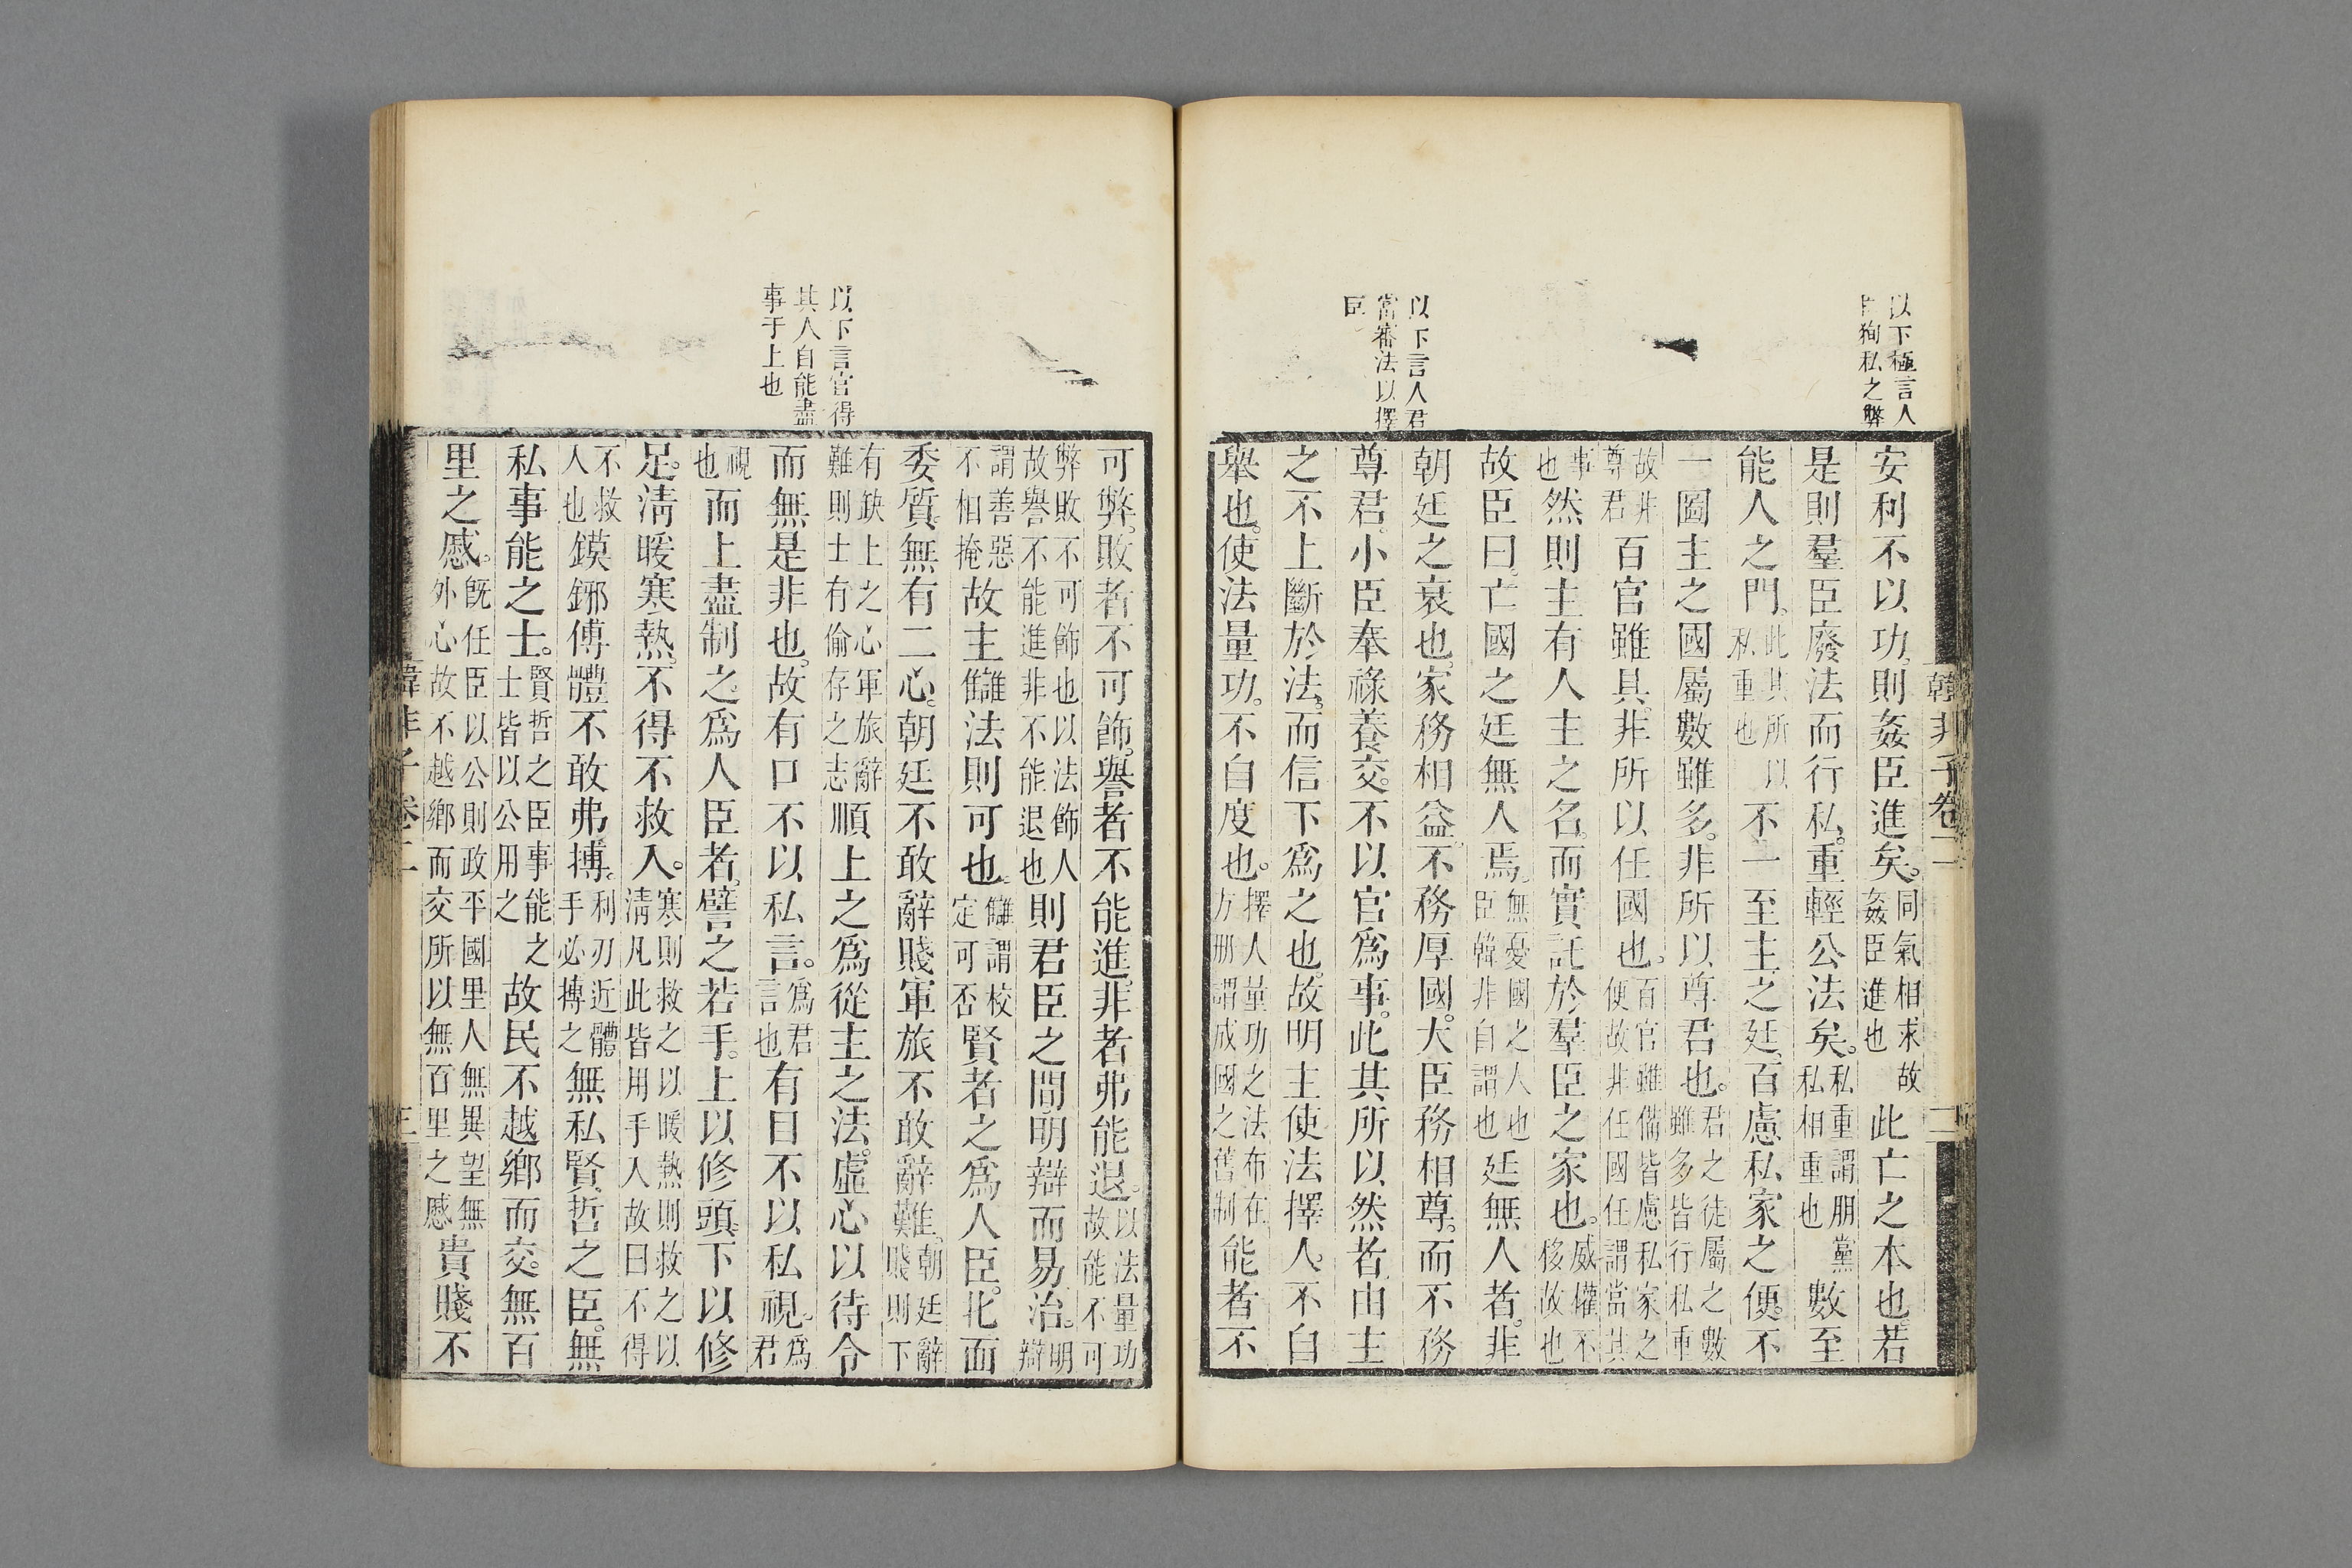 以下極言人
臣狥私之弊
以下言人君
當審法以擇
臣
韓非子卷二 二
安利不以功則姦臣進矣。同氣相求故姦臣進也此亡之本也若
是則羣臣廢法而行私。重輕公法矣。私重謂朋黨私相重也數至
能人之門。此其所以私重也不一至主之廷。百慮私家之便。不
一圖主之國屬數雖多。非所以尊君也。君之徒屬之數雖多皆行私重
故非尊君百官雖具。非所以任國也。百官雖備皆慮私家之便故非任國任謂當其
事也然則主有人主之名。而實託於羣臣之家也。威權不移故也
故臣曰。亡國之廷無人焉。無憂國之人也臣韓非自謂也廷無人者。非
朝廷之衰也。家務相益。不務厚國。大臣務相尊。而不務
尊君。小臣奉祿養交。不以官爲事。此其所以然者由主
之不上斷於法。而信下爲之也。故明主使法擇人。不自
舉也。使法量功。不自度也。擇人量功之法布在方册謂成國之舊制能者不
以下言官得
其人自能盡
事于上也
可弊。敗者不可飾。譽者不能進。非者弗能退。以法量功故能不可
弊敗不可飾也以法飾人故譽不能進非不能退也則君臣之間明辯而易治。明辯
謂善惡不相掩故主讎法則可也。讎謂校定可否賢者之爲人臣。北面
委質。無有二心。朝廷不敢辭賤。軍旅不敢辭難。朝廷辭賤則下
有缺上之心軍旅辭難則士有偷存之志順上之爲從主之法。虛心以待令
而無是非也。故有口不以私言。爲君言也有目不以私視。爲君
視也而上盡制之。爲人臣者。譬之若手。上以修頭。下以修
足。淸暖寒熱。不得不救入。寒則救之以暖熱則救之以淸凡此皆用手入故曰不得
不救人也鏌鋣傅體不敢弗搏。利刃近體手必搏之無私賢哲之臣。無
私事能之士。賢哲之臣事能之士皆以公用之故民不越鄉而交。無百
里之慼。旣任臣以公則政平國里人無異望無外心故不越鄉而交所以無百里之慼貴賤不
韓非子 卷二 三